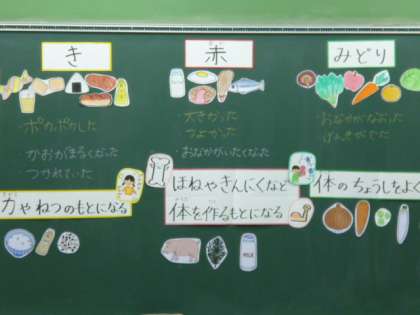 き
ポカポカした
かおがまるくなった
つかれていた
力やねつのもとになる
赤
大きかった
つよかった
おなかがいたくなった
ほねやきんにくなど
体を作るもとになる
MILK
みどり
おなかがなおった
げんきがでた
体のちょうしをよく